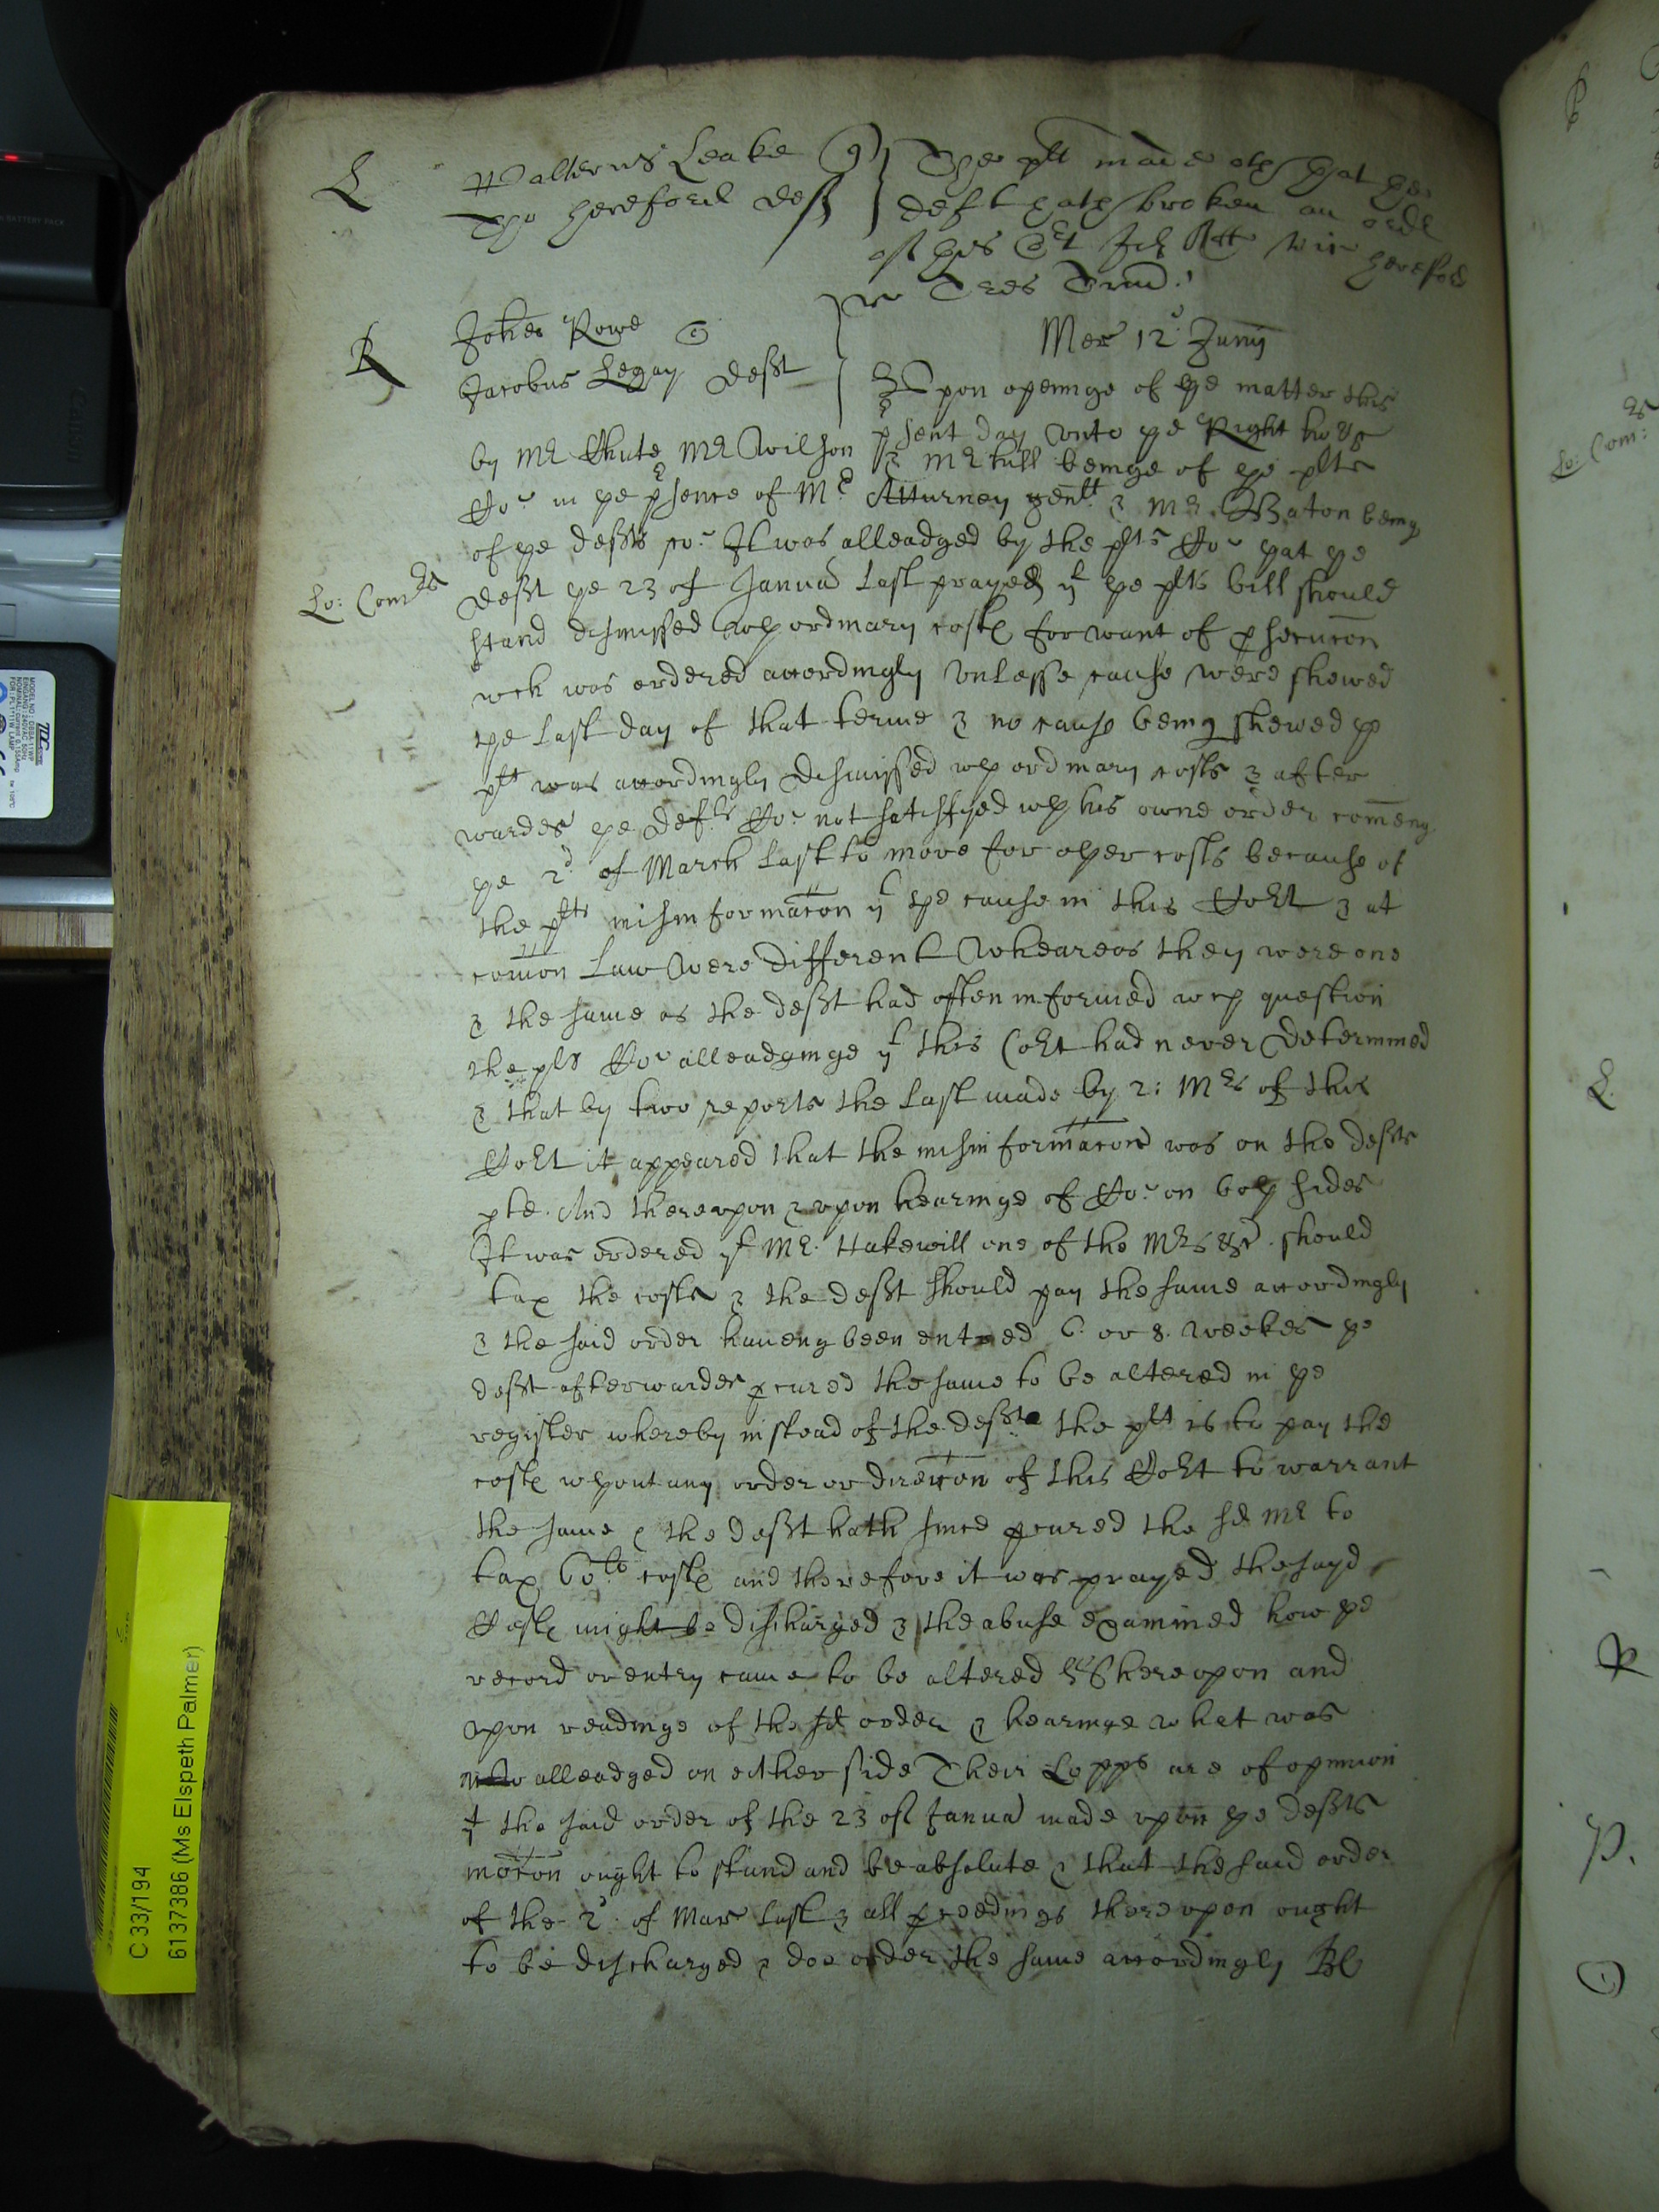 L Walterus Leake q The plt made oth that the
Tho Hereford deft deft hath broken an ordr
of this Crt Vic Hereford
Tres Trin:
R Johes Rowe q Mer 12o Junij
Jacobus Legay Defft Upon openinge of the matter this
psent day unto the Right hoble
by Mr Chute Mr Wilson & Mr Bull beinge of the plts
Cor in the psence of Mr Atturney genll & Mr Eaton being
of the deffts cor It was alleadged by the plts Cor that the
Lo: Comrs Defft the 23 of Januar last prayed yt the plts bill should
stand dismissed wth ordinary costs for want of psecucon
wch was ordered accordingly unlesse cause were shewed
the last day of that terme & no cause being shewed the
plt was accordingly dismissed wth ordinary costs & after
wardes the Defts Cor not satisfyed wth his owne order comeng
the 2d of March last to move for other costs because of
the plts misinformacon yt the cause in this Cort & at
comon Law were different Wheareas they were one
& the same as the defft had often informed wch question
the pls Cor alleadginge yt this Cort had never Determined
& that by two reports the last made by 2: Mrs of this
Cort it appeared that the misinformacon was on the deffts
pte. And thereupon & upon hearinge of Cor on both sides
It was ordered yt Mr. Hakewill one of the Mrs &c. should
tax the costs & the defft should pay the same accordingly
& the said order haueng been entred 6. or 8. weekes the
defft afterwardes pcured the same to be altered in the
register whereby instead of the deffts the plt is to pay the
costs wthout any order or direccon of this Cort to warrant
the same & the defft hath since pcured the sd Mr to
tax 60li costs and therefore it was prayed the sayd
Costs might be discharged & the abuse examined how the
record or entry came to be altered Whereupon and
upon readinge of the sd order & hearinge what was
alleadged on either side Their Lopps are of opinion
yt the said order of the 23 of Januar made upon the deffts
mocon ought to stand and be absolute & that the said order
of the 2d. of Mar last & all pceedings thereupon ought
to be discharged & doe order the same accordingly
Lo: Com:rs
L.
R
P.
C 33/194
6137386 (Ms Elspeth Palmer)